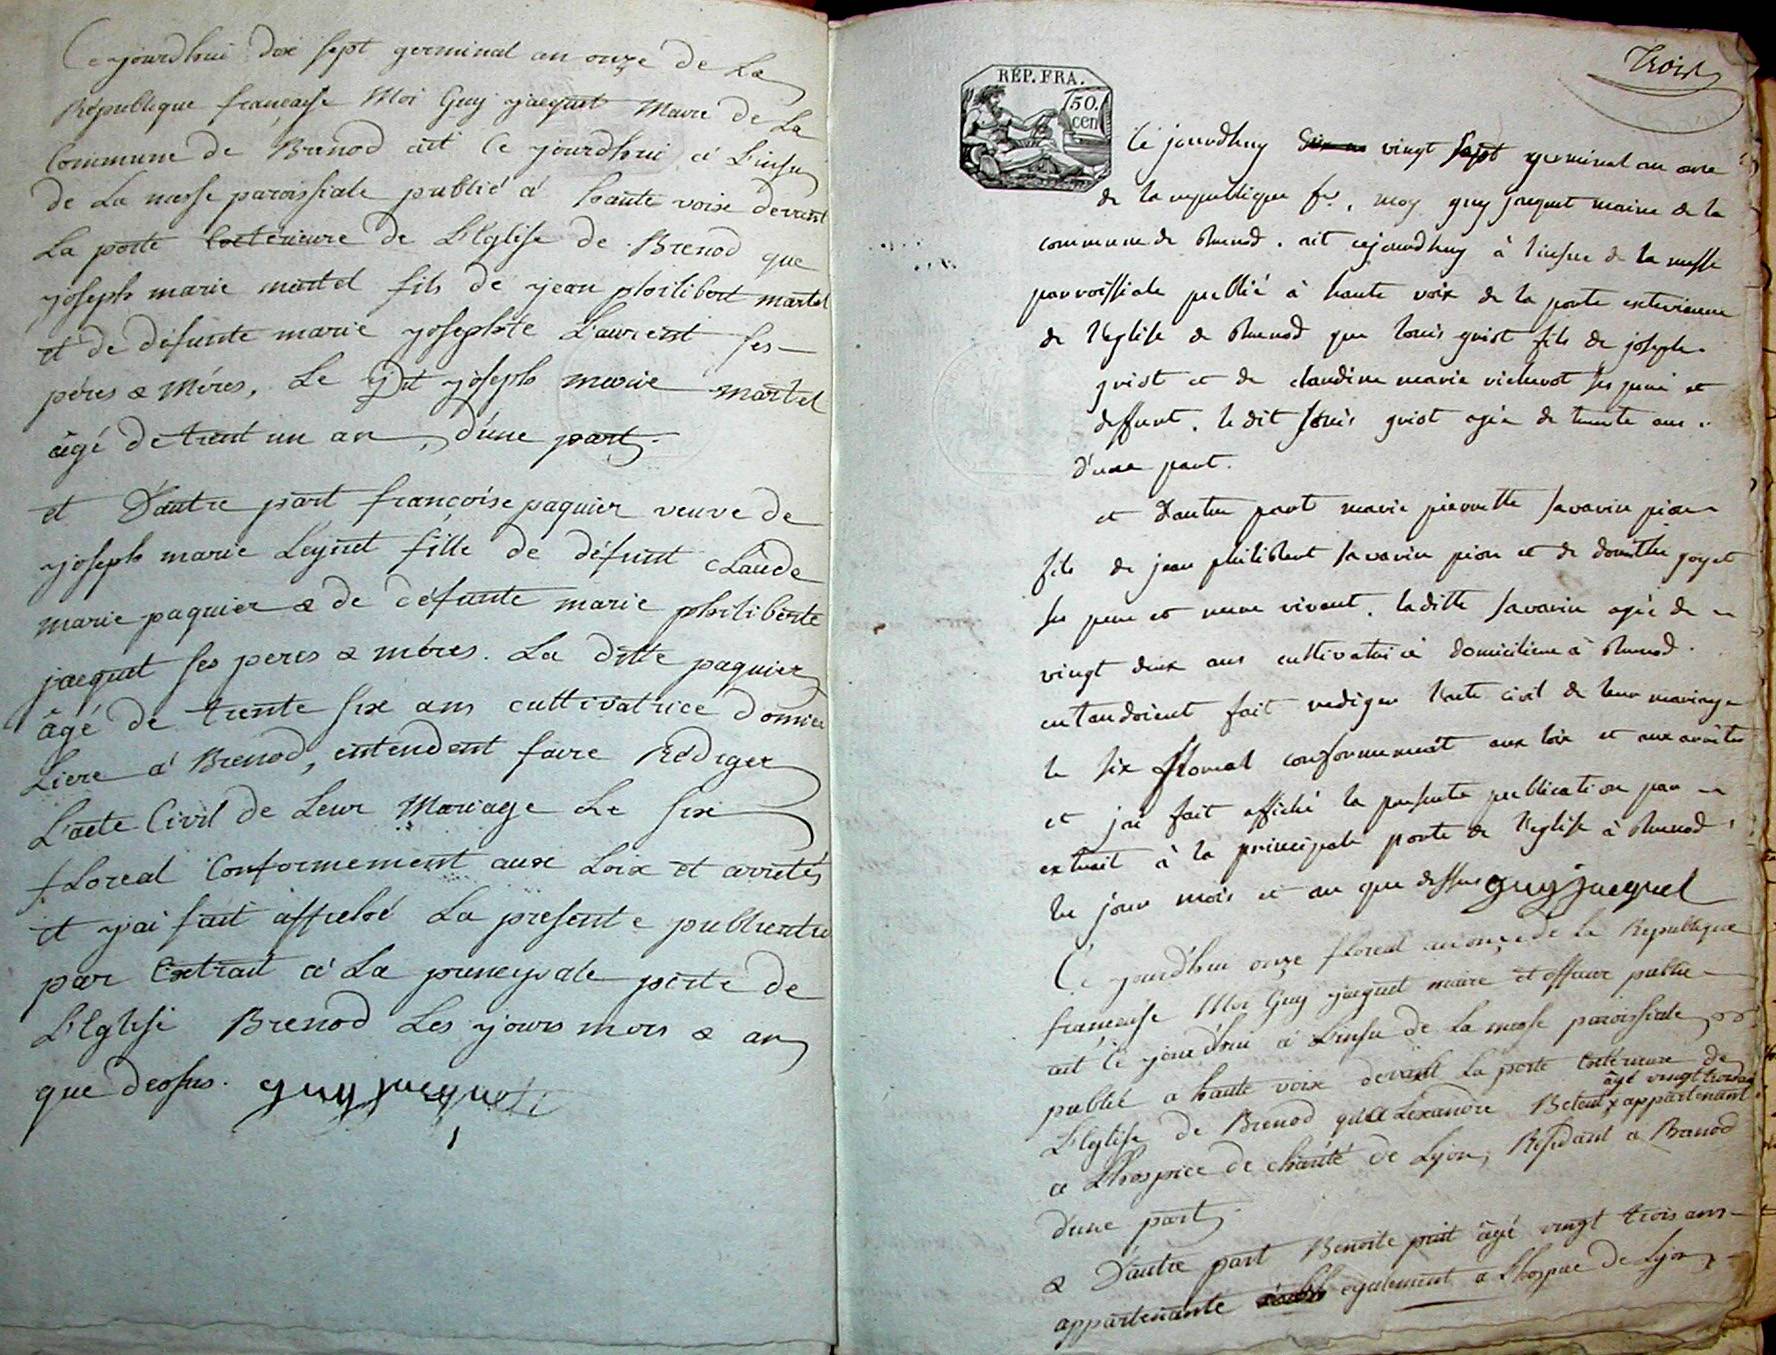 Ce jourdhui dix sept germinal an onze de La
Republique francaise Moi Guy jacquet Maire de La
Commune de Brenod ait Ce jourdhui a L'insu
de La messe paroissiale publié a haute voix devant
La porte Exterieure de L'Eglise de Brenod que
joseph marie martel fils de jean philibert martel
et de defunte marie josephte Laurent ses
péres & Méres, Le dit joseph marie martel
âgé de trent un an, d'une part.
et D'autre part françoise paquier veuve de
joseph marie Leynet fille de défunt cLaude
marie paquier & de défunte marie philiberte
jacquet ses peres & méres. La ditte paquier
âgé de trente six ans cultivatrice domici
Liere a Brenod, entendent faire Rédiger
L'acte Civil de Leur Mariage Le six
fLoreal Conformement aux Loix et arretés
et j'ai fait affiché La presente publicatio
par Extrait a La principale porte de
L'Eglise Brenod Les jours mois & an
que dessus. guy jacquet
Trois
REP. FRA.
50. cen
Ce jourdhuy vingt sept germinal an onze
de la republique fr. moy guy jaquet maire de la
commune de Brenod. ait cejourdhuy à l'insue de la messe
parroissiale publié à haute voix de la porte exterieure
de l'eglise de Brenod que louis guiot fils de joseph
guiot et de claudine marie vichevot ses pere et
deffunt. le dit louis guiot agée de trente ans
d'une part.
et d'autre part marie pierrette savarin pion
fils de jean philibert savarin pion et de dorothé goyet
ses pere et mere vivant. laditte savarin agée de
vingt deux ans cultivatrice domiciliere à Brenod.
entendoient fait rediger l'acte civil de leur mariage
le six floreal conformement aux loix et aux arrêtés
et jai fait affiché la presente publication par
extrait à la principale porte de l'eglise à Brenod
les jour mois et an que dessus guy jacquet
Ce jourd'hui onze floreal an onze de La Republique
française Moi Guy jacquet maire et officier public
ait Ce jourd'hui a L'insu de La messe paroissiale
publié a haute voix devant La porte Exterieure de
âgé vingt trois ans
L'Eglise de Brenod qu'aLexandre appartenant
a L'hospice de charité de Lyon, Residant a Brenod
d'une part.
& D'autre part Benoite âgé vingt trois ans
appartenante egalement a L'hospice de Lyon,